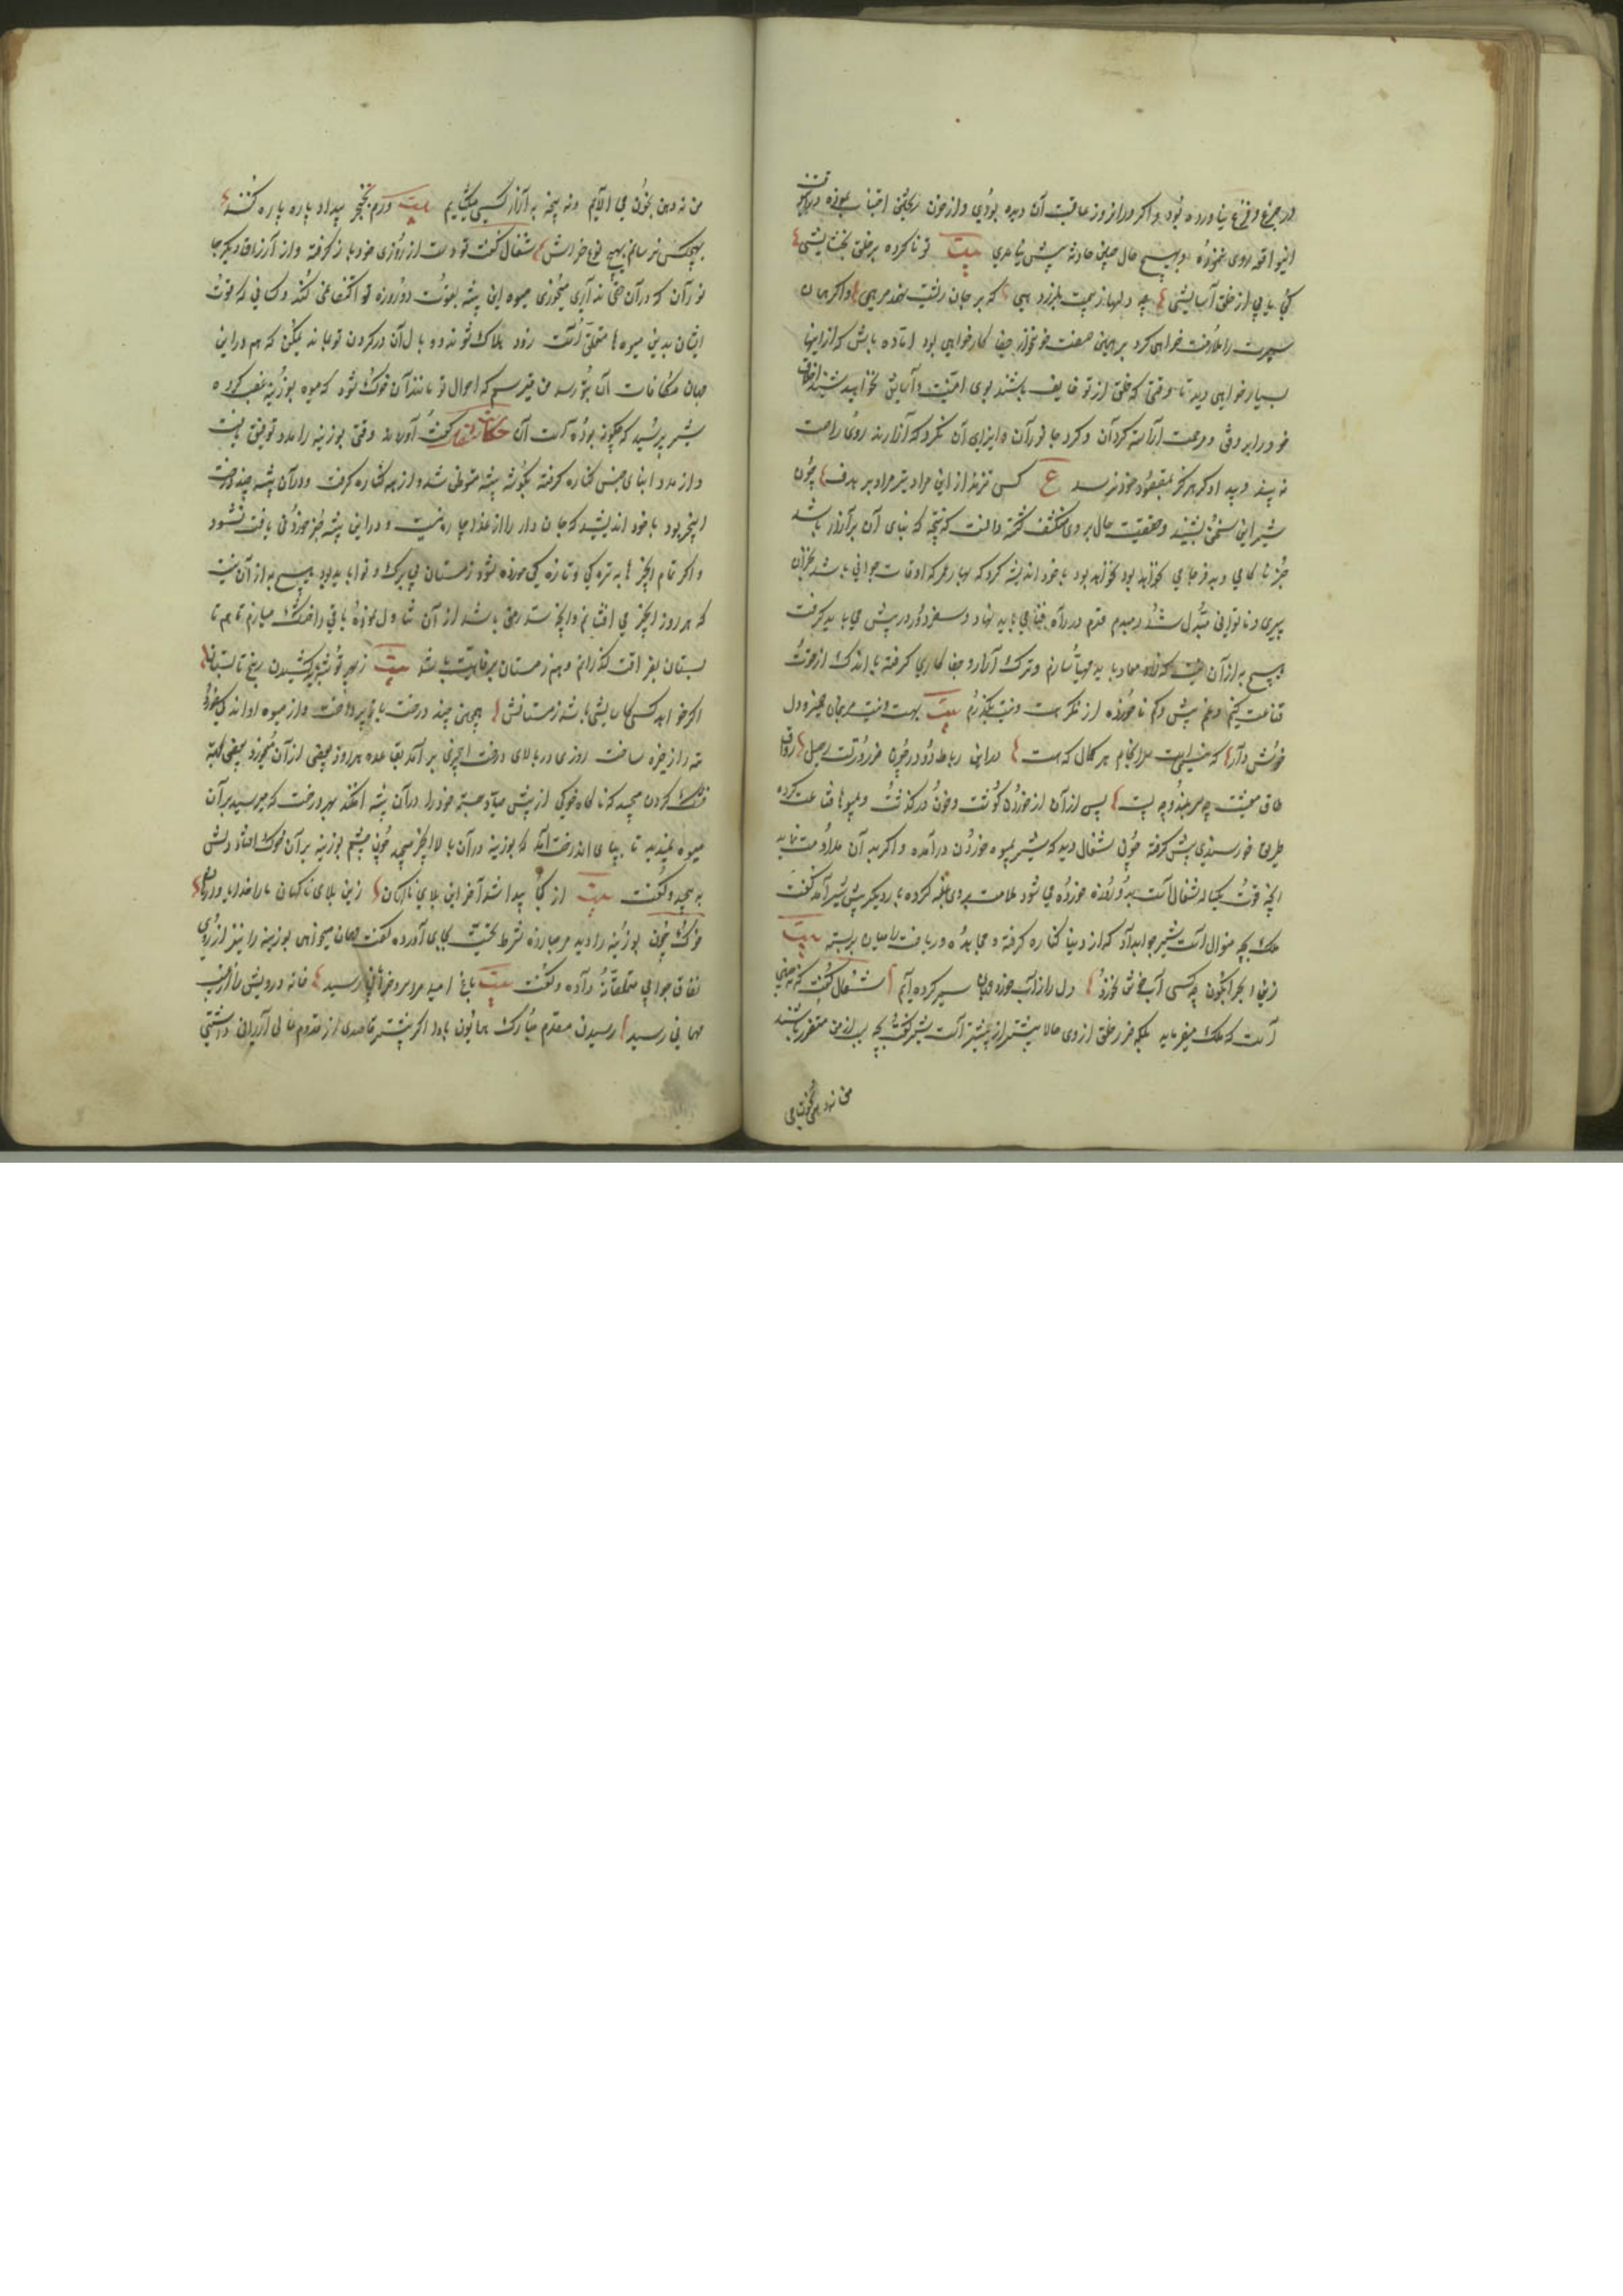 در جزع و فزع نیاورده بود و اگر در آن روز عاقبت آن دیده بودی و از خون ریختن اجتناب نموده در این وقت
این واقعه روی ننمودی و هیچ حال چنین حادثه پیش نیامدی بیت تو ناکرده بر خلق بخشایشی
کجا یابی از خلق آسایشی چه دلها ز بیمت بلرزد همی که بر جان ریشت نهد مرهمی و اگر همان
سیرت را ملازمت خواهی کرد بر همین صفت خونخوار جفا کار خواهی بود آماده باش که از اینها
بسیار خواهی دید تا وقتی که خلق از تو خایف باشند بوی امنیت و آسایش نخواهد شنید اخلاق
خود را برفق و مرحمت آراسته گردان و گرد جانوران و ایذای آن مگرد که آزارنده روی راحت
نه بیند و بیدادگر هرگز بمقصود خود نرسد ع کس نزند از این مراد تیر مراد بر هدف چون
شیر این سخن بشنید و حقیقت حال بر وی منکشف گشت دانست که نتیجه که بنای آن بر آزار باشد
جز ناکامی و بدفرجامی نخواهد بود با خود اندیشه کرد که بهار عمر که اوقات جوانی باشد بخزان
پیری و ناتوانی مبدل شد و دمبدم قدم در راه فنا می باید نهاد و سفر دور در پیش می باید گرفت
هیچ به از آن نیست که زاد معاد باید مهیا سازم و ترک آزار و جفا کاری گرفته با اندک از قوت
قناعت کنم و غم بیش و کم ناخورده از فکر هست و نیست بگذرم بیت بهست و نیست مرنجان ضمیر و دل
خوش دار که نیستیست سرانجام هر کمال که هست در این رباط دو در چون ضرورتست رحیل رواق
طاق معیشت چه سربلند و چه پست پس از آن از خوردن گوشت و خون درگذشت و بمیوها قناعت کرده
طریق خورسندی پیش گرفت چون شغال دید که شیر بمیوه خوردن درآمده و اگر به آن مداومت نماید
آنچه قوت یکساله شغال است بده روزه خورده می شود ملامت بر وی غلبه کرده بار دیگر پیش شیر آمد گفت
ملک بچه منوال است شیر جواب داد که از دنیا کناره گرفته و مجاهده و ریاضت را میان بربسته بیت
زین بحر نیلگون چه کسی آب خوش نخورد دل را از آب خورد جهان سیر کرده ایم شغال گفت نه چنین
است که ملک میفرماید بلکه ضرر خلق از وی حالا بیشتر از پیشتر است شیر گفت بچه سبب از من متضرر باشند
من نه دهن بخون می
من نه دهن بخون می آلایم و نه پنجه به آزار کسی میگشایم بیت ورم بخنجر بیداد پاره پاره کنند
بهیچکس نرسانم بهیچ نوع خراش شغال گفت تو دست از روزی خود باز گرفته و از ارزاق دیگر جا
نوران که در آن حقی نداری میخوری میوه این بیشه بقوت ده روزه تو اکتفا نمی کند و کسانی که قوت
ایشان بدین میوه ها متعلق است زود هلاک شوند و وبال آن در گردن تو بماند یمکن که هم در این
جهان مکافات آن بتو رسد من میترسم که احوال تو مانند آن خوک شود که میوه بوزینه غصب کرده
شیر پرسید که چگونه بوده است آن حکایت شغال گفت آورده اند وقتی بوزینه را مدد توفیق یافت
و از مدد ابنای جنس کناره گرفته بگوشه بیشه متوطن شد و از همه کناره گرفت و در آن بیشه چند درخت
انجیر بود با خود اندیشید که جان دار را از غذا چاره نیست و در این بیشه جز خوردنی یافت نشود
و اگر تمام انجیر ها به تری و تازه گی خورده شود زمستان بی برگ و نوا باید بود هیچ به از آن نیست
که هر روز انجیر می افشانم و آنچه سد رمق باشد از آن تناول نموده باقی را خشک میسازم تا هم تا
بستان بفراغت گذرانم و هم زمستان برفاهیت باشد بیت ز بهر توشه کشیدن رنج تابستان
اگر خواهد کسی کاسایشی باشد زمستانش همچنین چند درخت باز پرداخت و از میوه او اندکی خورد
تتمه را ذخیره ساخت روزی در بالای درخت انجیری بر آمد بقاعده هر روز بعضی از آن میخورد و بعضی بجهة
خشک کردن میچید که ناگاه خوکی از پیش صیاد جسته خود را در آن بیشه افکند بهر درخت که میرسید بر آن
میوه نمیدید تا بپای آن درخت آمد که بوزینه در آن بالا انجیر میچید چون چشم بوزینه بر آن خوک افتاد دلش
به پیچید و گفت بیت از کجا پیدا شد آخر این بلای ناگهان زین بلای ناگهان ما را خدایا وارهان
خوک چون بوزینه را دید مرحبا زده شرط تحیت بجای آورده گفت مهمان میخواهی بوزینه را نیز از روی
نفاق جوابی متملقانه داده و گفت بیت باغ امید مرا سرو خرامانی رسید خانه درویش را از غیب
مهمانی رسید رسیدن مقدم مبارک همایون باد اگر پیشتر قاصدی از قدوم عالی ارزانی داشتی